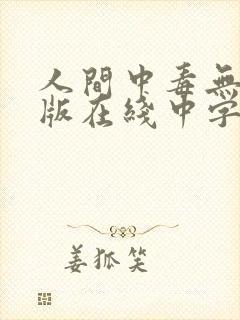 人間中毒無
版在綫中字
姜狐笑